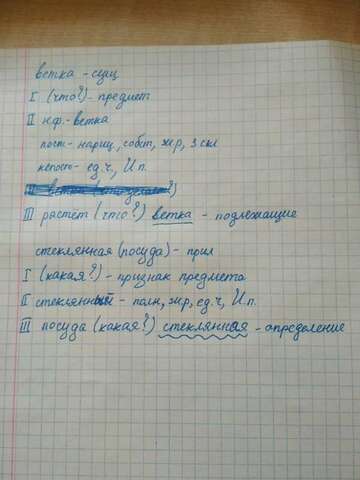 ветка - сущ
I (что?) - предмет
II н.ф. - ветка
пост - нариц, собст, жр, 3 скл
непост - ед.ч, И.п.
III растет (что?) ветка - подлежащие
стеклянная (посуда) - прил
I (какая?) - признак предмета
II стеклянный - полн, жр, ед.ч, И.п.
III посуда (какая?) стеклянная - определение